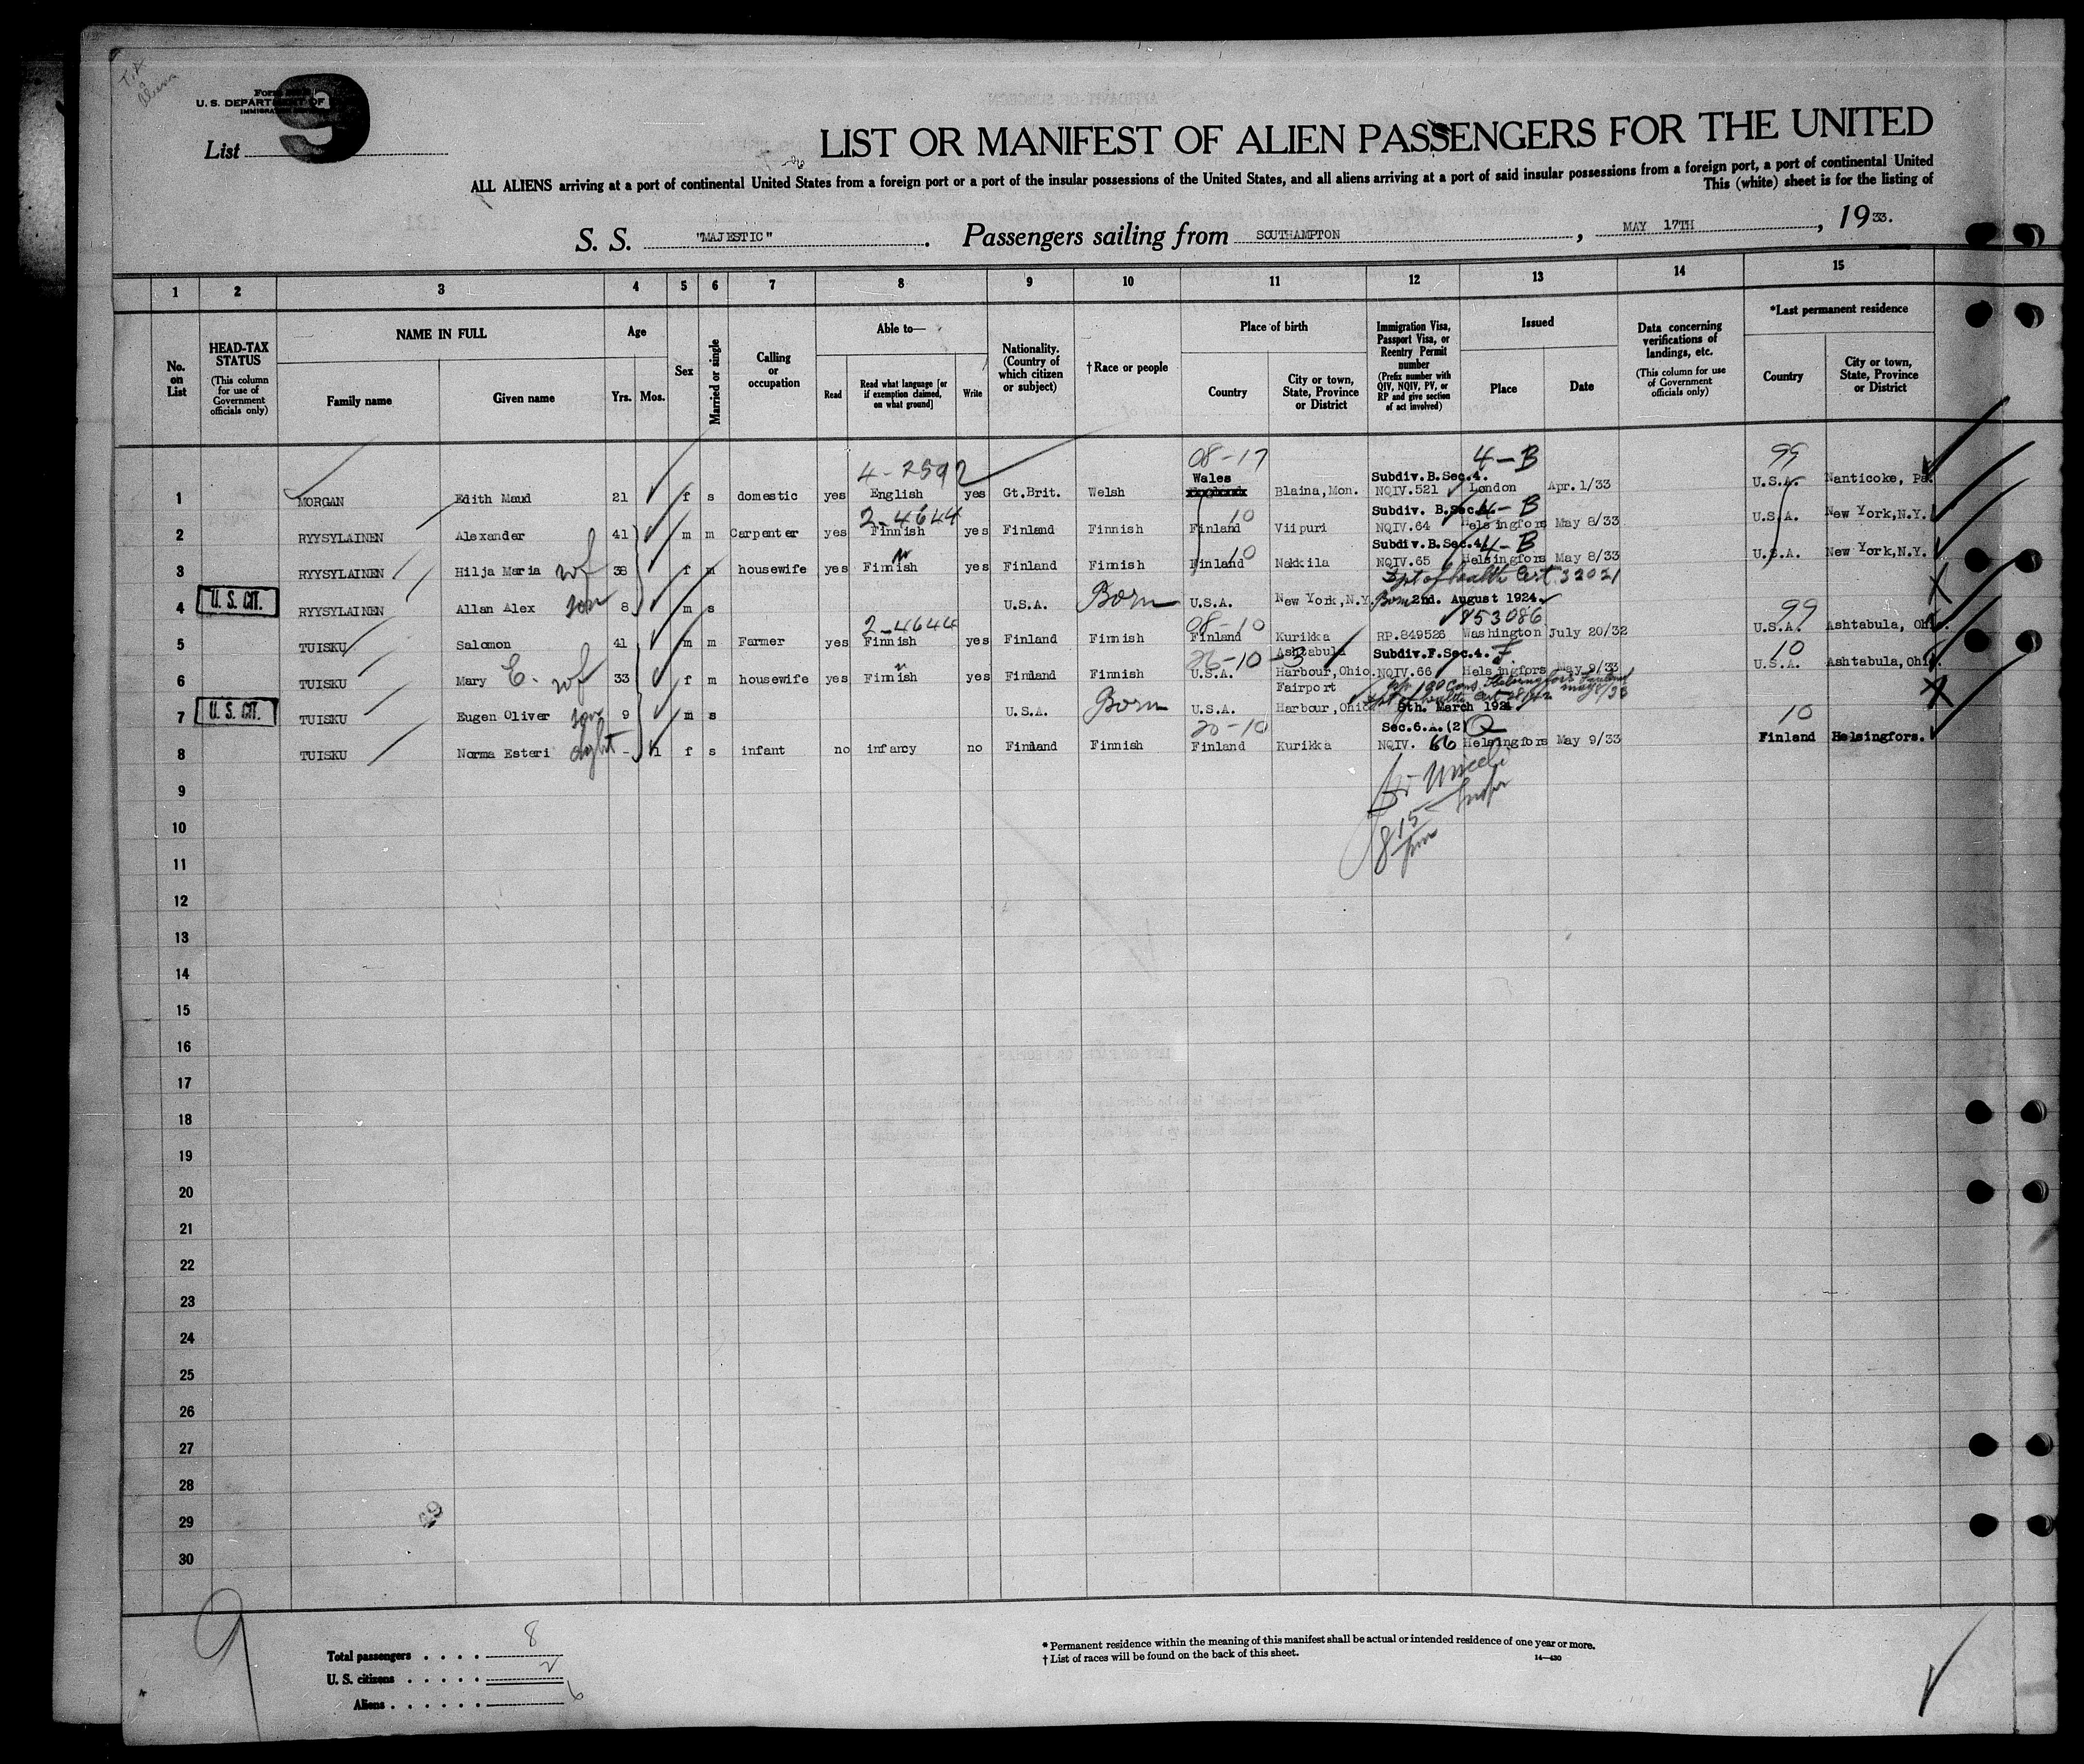 T.A
Aliens
Form
U. S. DEPARTMENT OF
IMMIGRA
9
List
LIST OR MANIFEST OF ALIEN PASSENGERS FOR THE UNITED
ALL ALIENS arriving at a port of continental United States from a foreign port or a port of the insular possessions of the United States, and all aliens arriving at a port of said insular possessions from a foreign port, a port of continental United
This (white) sheet is for the listing of
S. S. "MAJESTIC". Passengers sailing from SOUTHAMPTON, MAY 17TH, 1933.
1 2 3 4 5 6 7 8 9 10 11 12 13 14 15
No. on List
HEAD-TAX STATUS (This column for use of Government officials only)
NAME IN FULL
Family name Given name
Age
Yrs. Mos.
Sex
Married or single
Calling or occupation
Able to—
Read
Read what language [or if exemption claimed, on what ground]
Write
Nationality. (Country of which citizen or subject)
† Race or people
Place of birth
Country
City or town, State, Province or District
Immigration Visa, Passport Visa, or Reentry Permit number (Prefix number with QIV, NQIV, PV, or RP and give section of act involved)
Issued
Place Date
Data concerning verifications of landings, etc. (This column for use of Government officials only)
*Last permanent residence
Country
City or town, State, Province or District
4-2592 08-17 4-B 99
Wales Subdiv.B.Sec.4.
1 MORGAN Edith Maud 21 f s domestic yes English yes Gt.Brit. Welsh Blaina, Mon. NQIV.521 London Apr.1/33 U.S.A. Nanticoke, Pa.
2-4644 10 Subdiv. B.Sec.4. 4-B
2 RYYSYLAINEN Alexander 41 m m Carpenter yes Finnish yes Finland Finnish Finland Viipuri NQIV.64 Helsingfors May 8/33 U.S.A. New York,N.Y.
10 Subdiv.B.Sec.4. 4-B
3 RYYSYLAINEN Hilja Maria wf 38 f m housewife yes Finnish yes Finland Finnish Finland Nakkila NQIV.65 Helsingfors May 8/33 U.S.A. New York,N.Y.
Dpt of health Cert. 32021
U. S. CIT.
4 RYYSYLAINEN Allan Alex son 8 m s U.S.A. Born U.S.A. New York,N.Y. Born 2nd. August 1924.
2-4644 08-10 853086 99
5 TUISKU Salomon 41 m m Farmer yes Finnish yes Finland Finnish Finland Kurikka RP.849526 Washington July 20/32 U.S.A. Ashtabula, Ohio.
26-10-3 Ashtabula Subdiv.F.Sec.4. F. 10
6 TUISKU Mary E. wf 33 f m housewife yes Finnish yes Finland Finnish U.S.A. Harbour,Ohio NQIV.66 Helsingfors May 9/33 U.S.A. Ashtabula,Ohio.
Fairport
U. S. CIT.
7 TUISKU Eugen Oliver son 9 m s U.S.A. Born U.S.A. Harbour,Ohio 9th. March 1924.
20-10 Sec.6.A.(2) Q 10
8 TUISKU Norma Esteri dght - 11 f s infant no infancy no Finland Finnish Finland Kurikka NQIV. 66 Helsingfors May 9/33 Finland Helsingfors.
9
10
8 15 pm
11
12
13
14
15
16
17
18
19
20
21
22
23
24
25
26
27
28
29
30
9
Total passengers 8
U. S. citizens 2
Aliens 6
* Permanent residence within the meaning of this manifest shall be actual or intended residence of one year or more.
† List of races will be found on the back of this sheet.
14—430